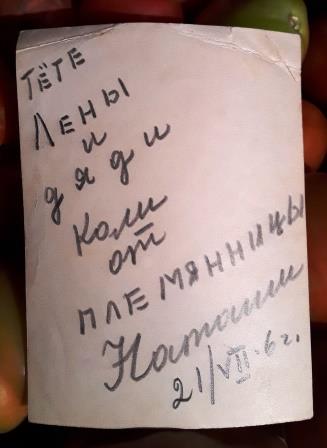 ТЁТЕ
ЛЕНЫ
и
дяди
Коли
от
ПЛЕМЯННИЦЫ
Наташи
21/VII·6г.